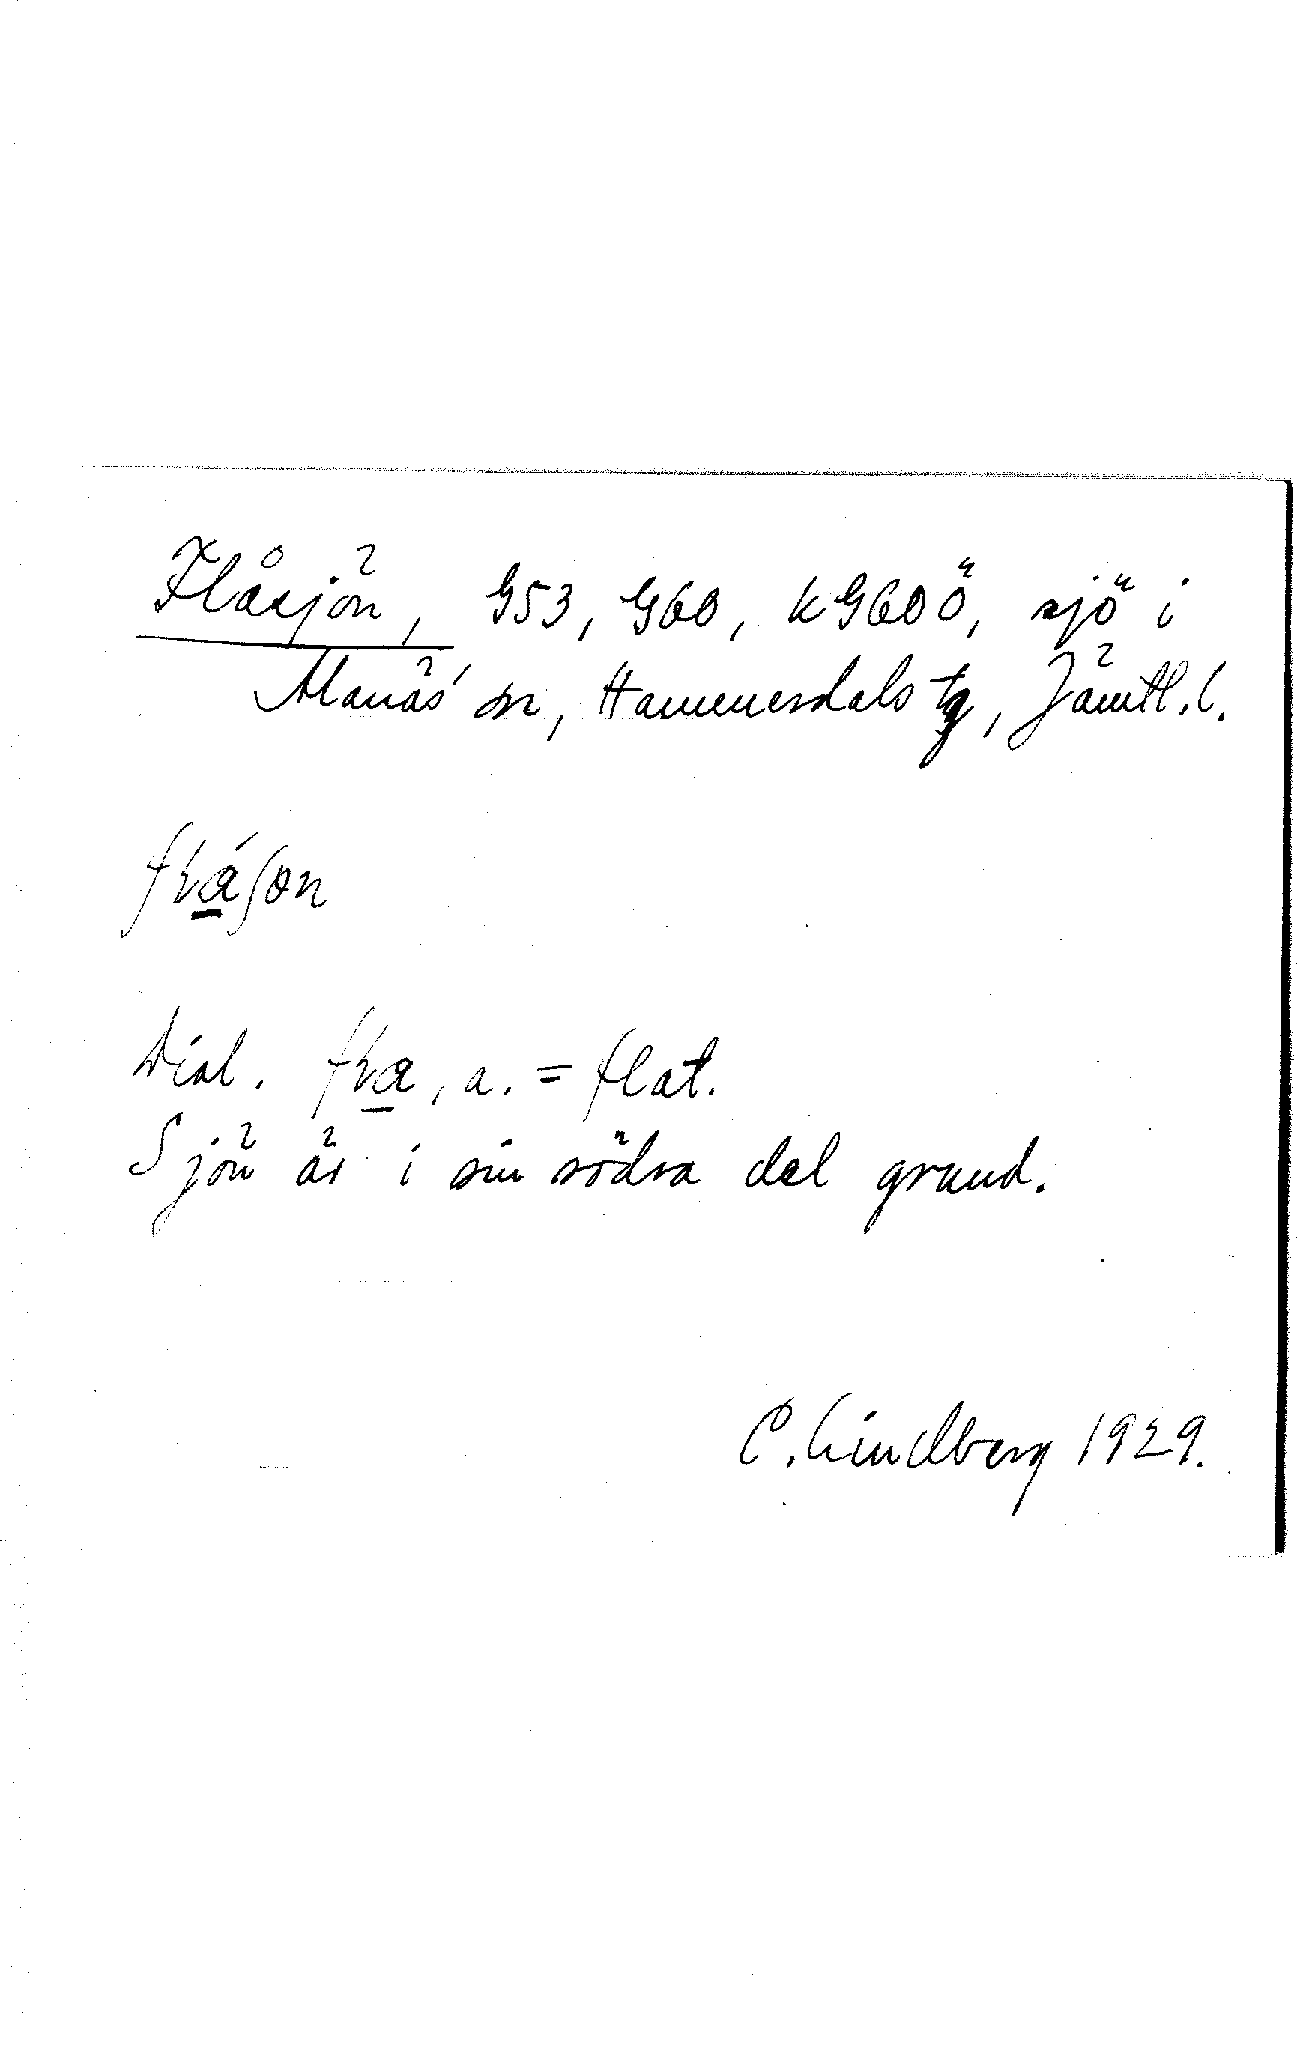 Flåsjön, G53, G60, kG60ö, sjö i
Alanäs' sn, Hammerdals tg, Jämtl. l.
Dial. a. = flat.
Sjön är i sin södra del grund.
C. Lindberg 1929.